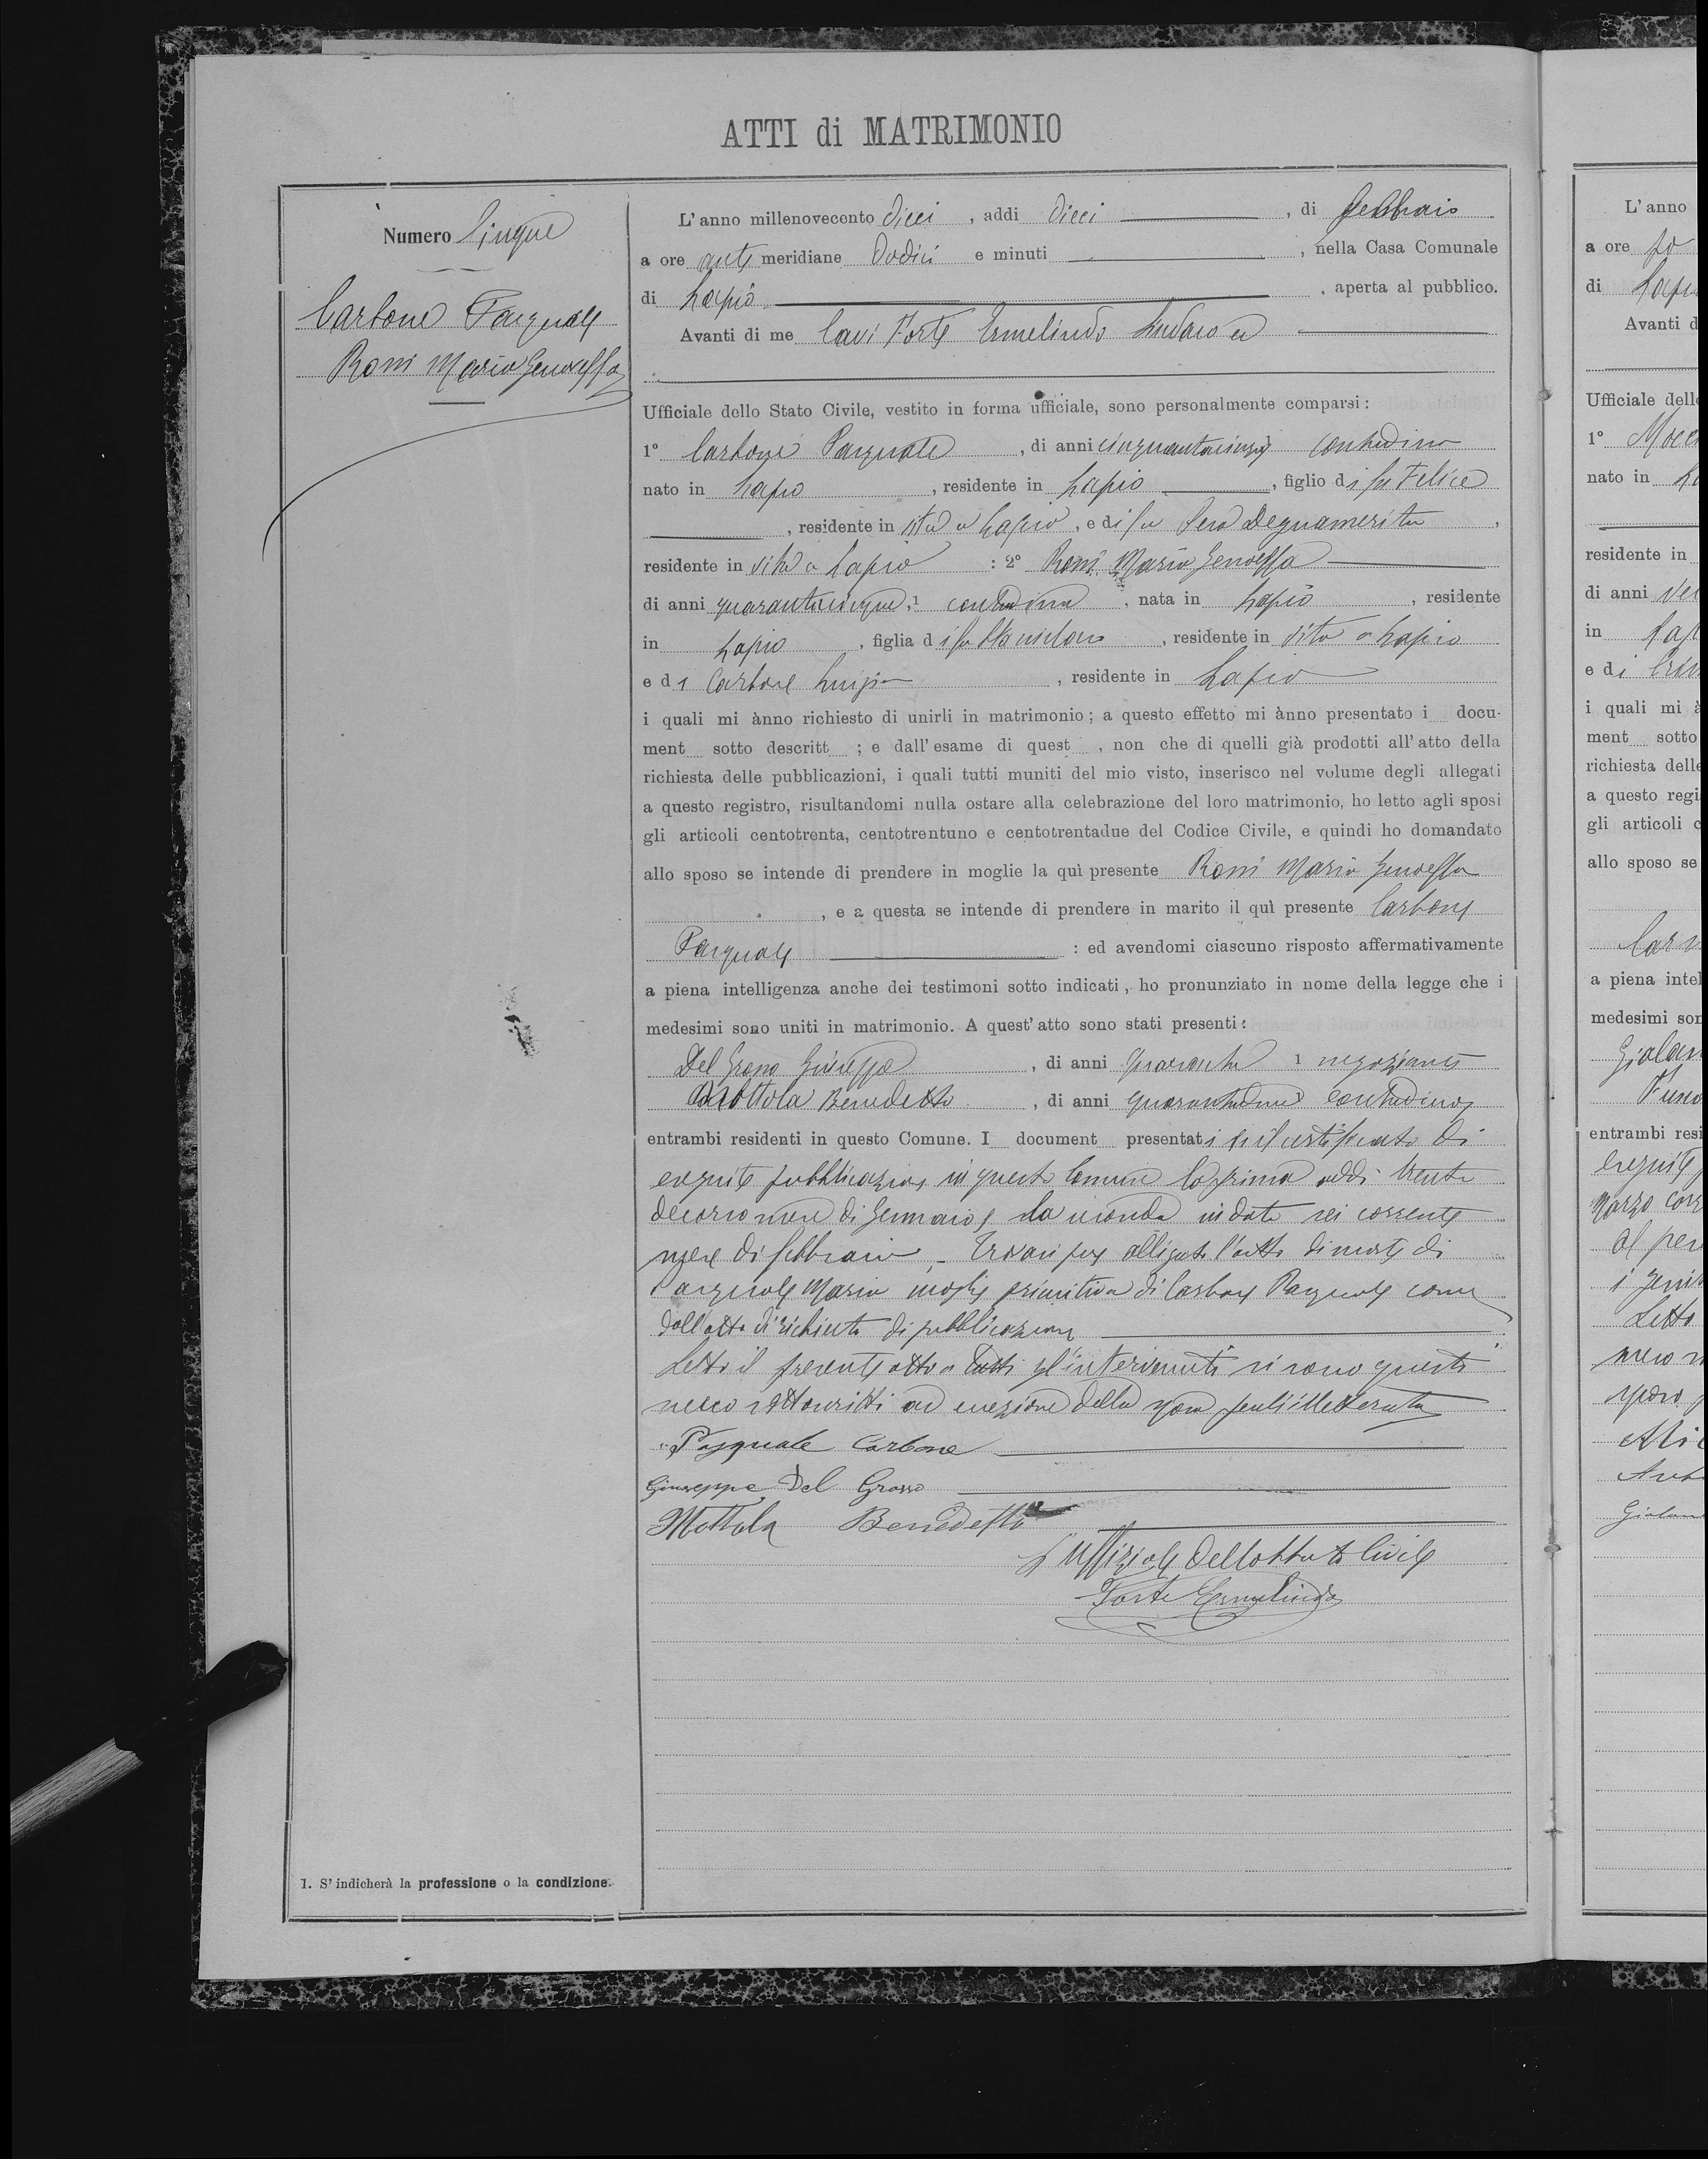 ATTI di MATRIMONIO
Numero Cinque
Carbone Pasquale
Romi Maria Genoveffa
1. S'indicherà la professione o la condizione.
L'anno millenovecento dieci, addi dieci, di Febbraio
a ore anti meridiane dodici e minuti, nella Casa Comunale
di Lapio, aperta al pubblico.
Avanti di me Cavi Forte Ermelindo Sindaco ed
Ufficiale dello Stato Civile, vestito in forma ufficiale, sono personalmente comparsi:
1° Carbone Pasquale, di anni cinquantacinque contadino
nato in Lapio, residente in Lapio, figlio di fu Felice
, residente in vita a Lapio, e di fu Pera Degnamerita,
residente in vita a Lapio : 2° Romi Maria Genoveffa
di anni quarantacinque, 1 contadina, nata in Lapio, residente
in Lapio, figlia di fu Stanislao, residente in vita a Lapio
e di Carbone Luigia, residente in Lapio
i quali mi ànno richiesto di unirli in matrimonio; a questo effetto mi ànno presentato i docu-
ment sotto descritt ; e dall'esame di quest , non che di quelli già prodotti all'atto della
richiesta delle pubblicazioni, i quali tutti muniti del mio visto, inserisco nel volume degli allegati
a questo registro, risultandomi nulla ostare alla celebrazione del loro matrimonio, ho letto agli sposi
gli articoli centotrenta, centotrentuno e centotrentadue del Codice Civile, e quindi ho domandato
allo sposo se intende di prendere in moglie la quì presente Romi Maria Genoveffa
, e a questa se intende di prendere in marito il quì presente Carbone
Pasquale : ed avendomi ciascuno risposto affermativamente
a piena intelligenza anche dei testimoni sotto indicati, ho pronunziato in nome della legge che i
medesimi sono uniti in matrimonio. A quest'atto sono stati presenti:
Del Grosso Giuseppe, di anni quaranta 1 negoziante
Mottola Benedetto, di anni quarantadue contadino,
entrambi residenti in questo Comune. I document presentati è il certificato di
eseguite pubblicazioni in questo Comune la prima addi trenta
decorso mese di Gennaio, e la seconda in data sei corrente
mese di febbraio. Trovasi pure alligato l'atto di morte di
Pasquale Maria moglie primitiva di Carbone Pasquale come
dall'atto di richiesta di pubblicazione
Letto il presente atto a tutti gl'intervenuti si sono questi
meco sottoscritti ad eccezione della sposa perché illetterata
Pasquale Carbone
Giuseppe Del Grosso
Mottola Benedetto
L'Uffiziale dello Stato Civile
Forte Ermelindo
L'anno
a ore po
di Lapi
Avanti d
Ufficiale dell
1° Mocc
nato in La
residente in
di anni ven
in Lap
e di
i quali mi à
ment sotto
richiesta delle
a questo regi
gli articoli c
allo sposo se
Carm
a piena intel
medesimi son
Giolan
Fusco
entrambi resi
eseguite
marzo corr
al pen
i geni
Letto
meco
sposo
Giolan